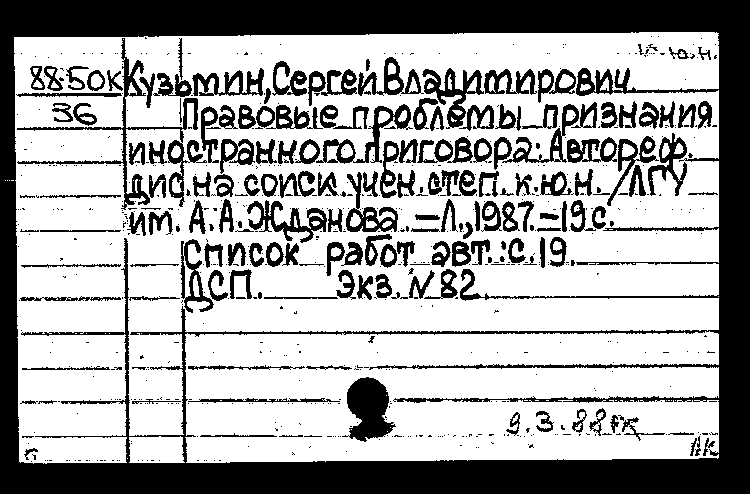 к.ю.н.
88-50к Кузьмин, Сергей Владимирович.
36 Правовые проблемы признания
иностранного приговора: Автореф.
дис. на соиск. учен. степ. к.ю.н. /ЛГУ
им. А.А.Жданова. —Л., 1987. —19 с.
Список работ авт.: с. 19.
ДСП. Экз. №82.
9.3.88
п АК